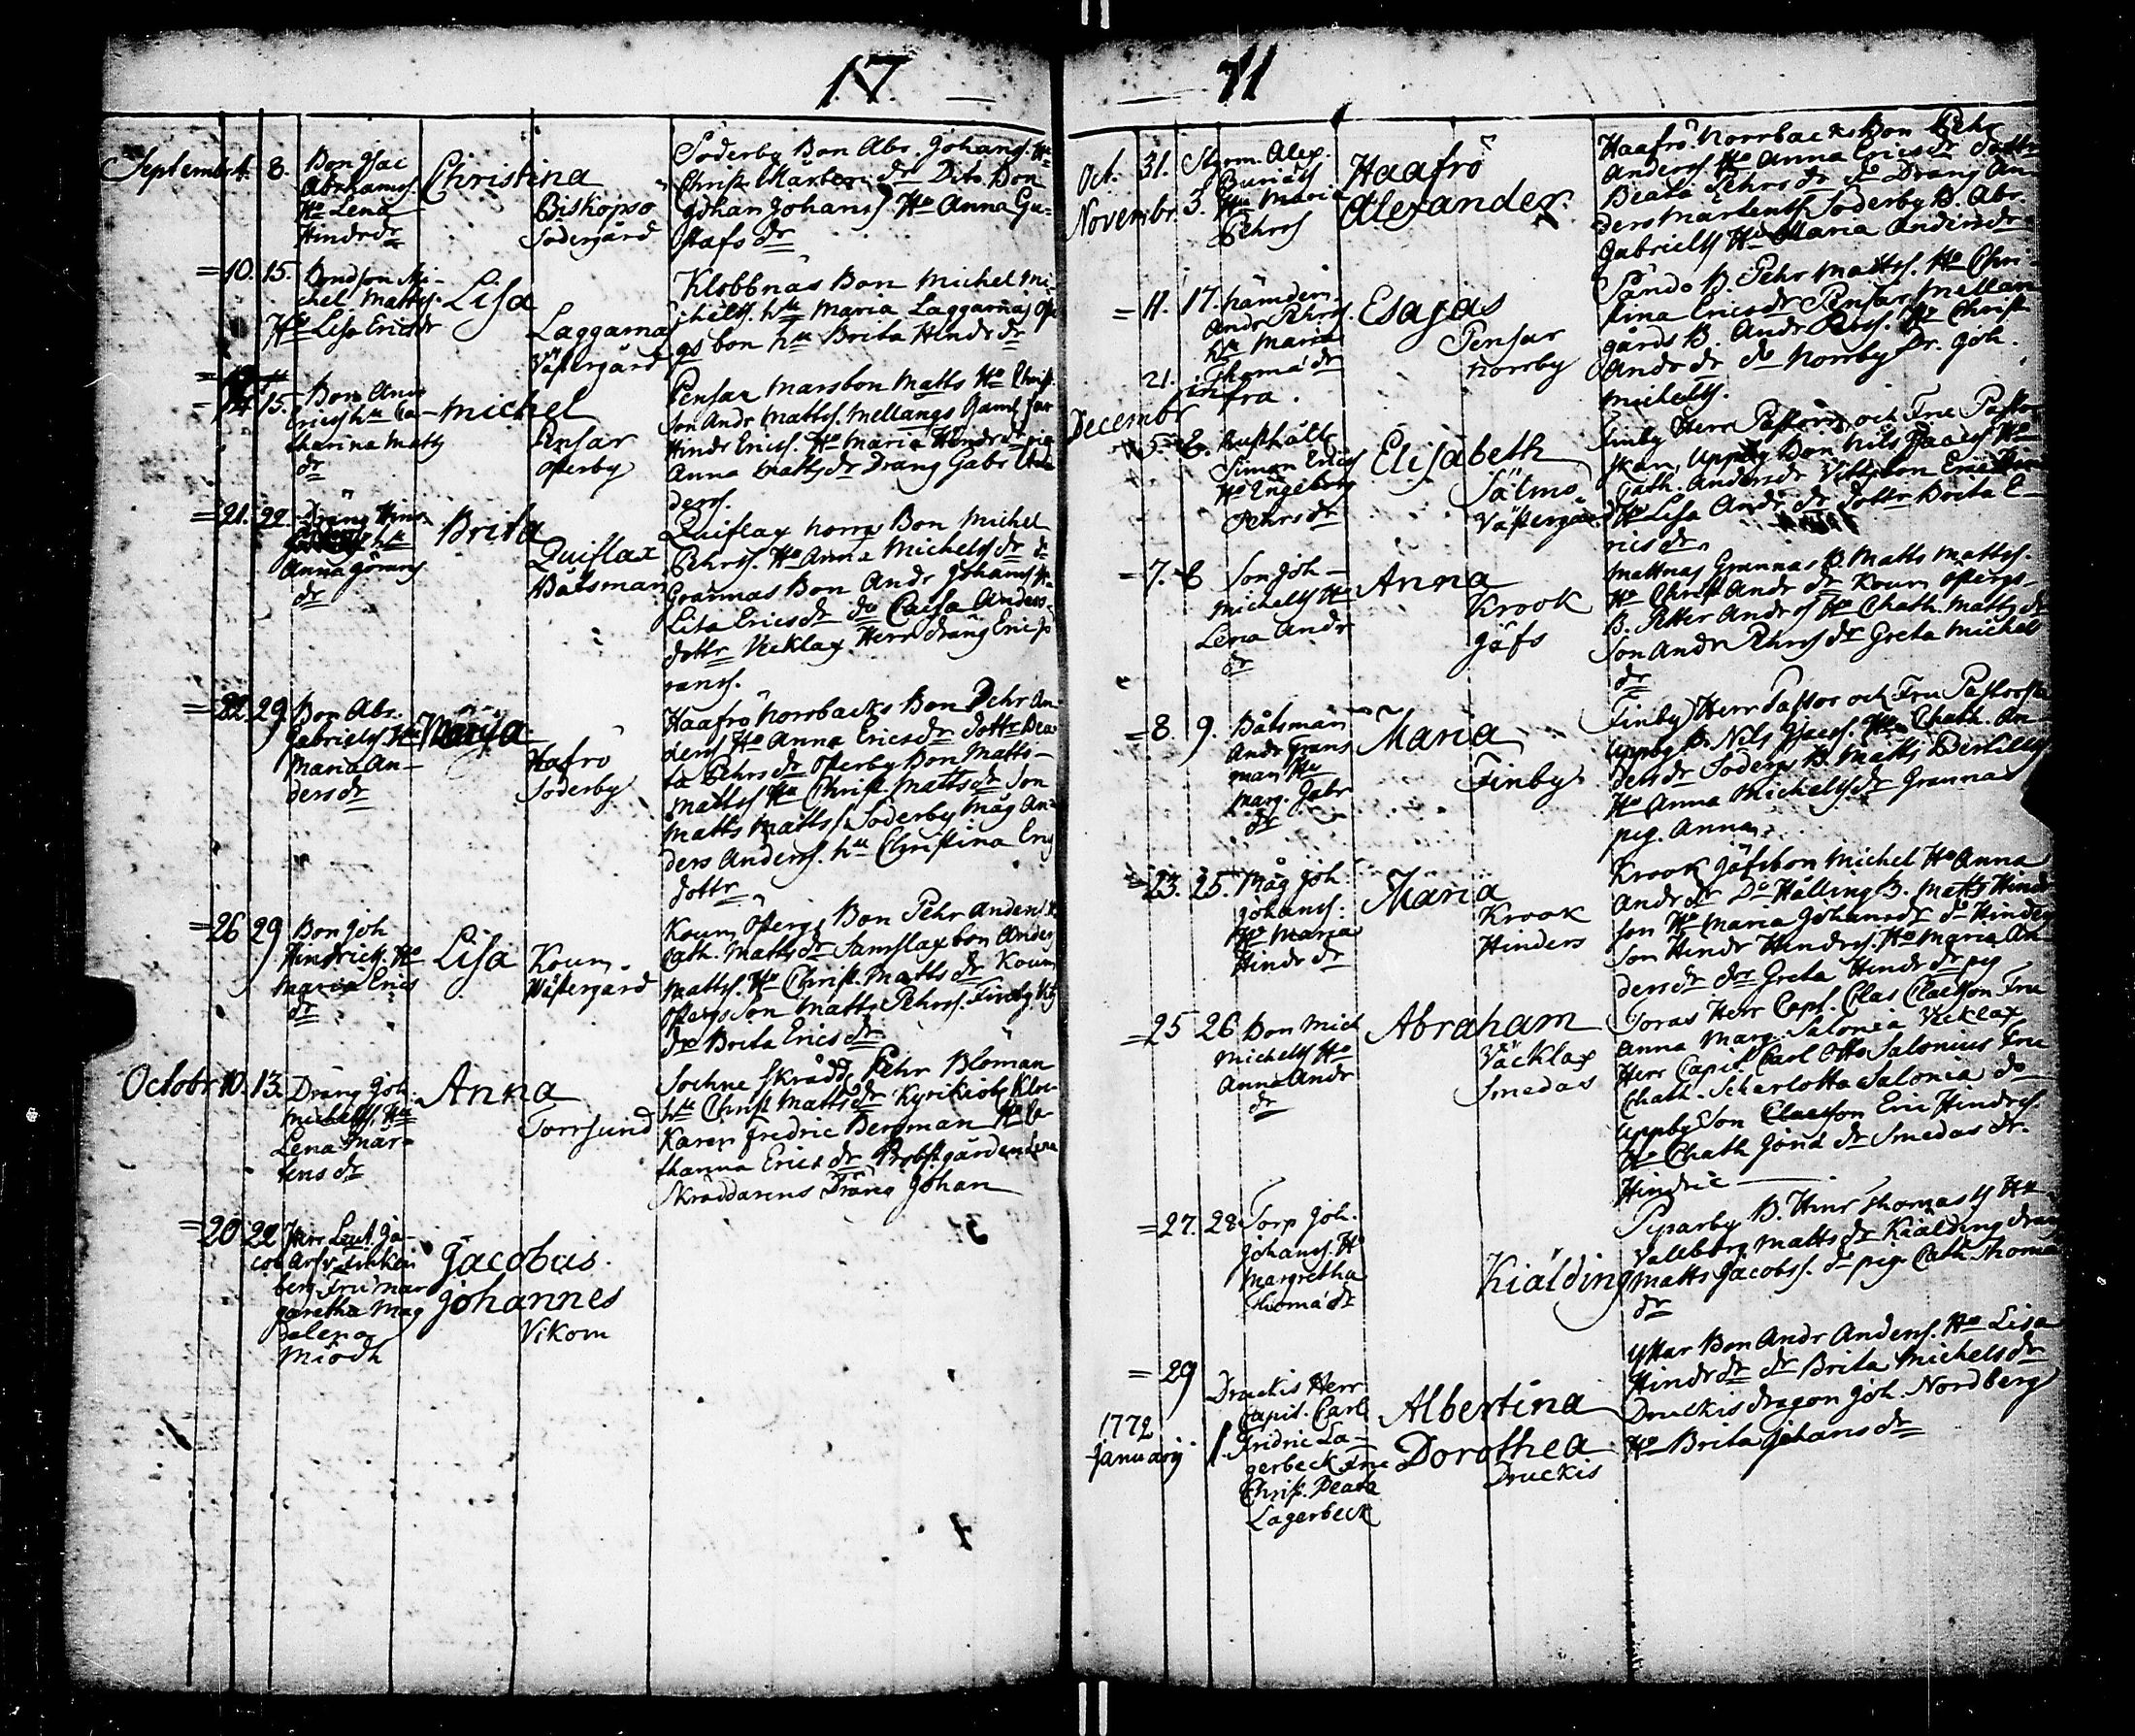 17
71
Septembr 4. 8. Bon Isac
Abrahams.
Ho Lena
Hindrdr
Christina
Biskopsö
Södergård
Söderby Bon Abr. Johans. Ho
Christ. Mårtens dr Dito Bon
Johan Johans) Ho Anna Gu-
stafs dr
= 10. 15. Bondson Mi-
chel Matts.
Ho Lisa Ericsdr
Lisa
Laggarna
Västergård
Klobbnäs Bon Michel Mi-
chelss. hu Maria Laggarnäs
gs bon hu Brita Hindr dr
= 14 15. Bon And
Ericss hu Ca-
tharina Matts
dr
Michel
Pensar
österby
Pensar Marsbon Matts Ho Christ.
Son Andr Mattss. Mellangs Gaml far
Hindr Ericss. Ho Maria Hindr dr pig
Anna Matts dr Dräng Gabr An
derss.
= 21. 22 Dräng Hin
hu
Anna Görans
dr
Brita
Quiflax
Båtsman
Quiflax Norrgs Bon Michel
Pehrss. Ho Anna Michels dr do
Grannas Bon Andr Johans Ho
Lisa Erics dr do Caisa Anders
dottr Vicklax Herr dräng Eric
ranss.
= 22. 29 Bon Abr.
Gabriels hu
Maria An-
ders dr
Maria
Hafrö
Söderby
Haafrö Norrbacks Bon Pehr An
derss Ho Anna Ericsdr dottr Bea
ta Pehrs dr österby Bon Matts
Mattss Ho Christ. Matts dr Son
Matts Matts / Söderby Måg An-
ders Anderss. hu Christina Erics
dottr
= 26 29 Bon Joh
Hindricks. Ho
Maria Erics
dr
Lisa
Koum
Wästergård
Koum Österg Bon Pehr Anders Ho
Cath. Matts dr Samslax bon Anders
Mattss. Ho Christ. Matts dr Koum
Östergs Son Matts Pehrss. Finby
dr Brita Erics dr
Octobr 10. 13. Dräng Joh
Michelss, Hu
Lena Mår-
tens dr
Anna
Torrsund
Sochne Skrädd Pehr Blöman
hu Christ Matts dr Kyrkiob Kloc-
karen Fredric Bergman Ho Ca-
tharina Erics dr Probstgården
Skräddarens Dräng Johan
= 20. 22 Herr Leut. Ja-
cob Arfv
berg Fru Mar
garetha Mag
dalena
Miödh
Jacobus.
Johannes
Vikom
Oct. 31. Storm. Alex.
Novembr. 3. Hu Maria
Pehrss
Haafrö
Alexander
Haafrö Norrbacks Bon Pehr
Anderss. Ho Anna Ericsdr Dottr
Beata Pehrs dr do Dräng An
ders Mårtenss Söderby B. Abr.
Gabrielss Ho Maria Anders dr
= 11. 17. Nämdem.
Andr Pehrss.
hu Maria
Thoma dr
Esajas
Pensar
Norrby
Sändö B. Pehr Mattss. Ho Chri-
stina Ericsdr Pensar Mellan
gårds B. Andr Pehrss. Ho Christ
Andr dr do Norrby Dr. Joh.
Michelss.
21. infra.
Decembr
5. 8. Rusthåll.
Simon Erics
Ho Engeborg
Pehrs dr
Elisabeth
Sälmo
Västergård
Finby Herr Pastorn och Fru Pasto
skan, Uppby Bon Nils Isacss Ho
Cath. Andersdr
Ho Lisa Andr dr Dottr Brita E-
rics dr
= 7. 8 Son Joh
Michelss Ho
Lena Andr
dr
Anna
Krook
Jäfs
Mattnas Grannas B. Matts Mattss.
Ho Christ Andr dr Koum Östergs
B. Petter Andrss Ho Chath. Matts dr
Son Andr Pehrss dr Greta Michels
dr
= 8. 9. Båtsman
Andr Grans
man Hu
Marg. Gabr
dr
Maria
Finby
Finby Herr Pastor och Fru Pastorska
Uppby B. Nils Isacss. Ho Chath. An-
ders dr Söderg B. Matts Bertilss
Ho Anna Michels dr Grannas
pig. Anna
= 23. 25. Måg Joh
Johanss.
Ho Maria
Hindr dr
Maria
Krook
Hinders
Krook Jäfsbon Michel Ho Anna
Andr dr Do Hälling B. Matts Hindr
son Ho Maria Johans dr do Hinders
Son Hindr Hindrss. Ho Maria An
ders dr dr Greta Hindr dr pig
= 25 26 Bon Mich
Michelss Ho
Anna Andr
dr
Abraham
Väcklax
Smedas
Toras Herr Capt. Clas Claeson Fru
Anna Marg. Salonia Vicklax
Herr Capit. Carl Otto Salonius Fru
Chath. Scharlotta Salonia do
Uppby Son Claeson Eric Hindrss.
Ho Chath Jöns dr Smedas dr.
Hindric
= 27. 28 Torp Joh.
Johanss. Ho
Margretha
Thoma dr
Kiälding
Piparby B. Hinr Thomass Hu
Valborg Matts dr Kiälding dräng
Matts Jacobss. do pig Cath. Thoma
dr
= 29
1772
January 1.
Druckis Herr
Capit. Carl
Fridric La-
gerbeck Fru
Christ. Beata
Lagerbeck
Albertina
Dorothea
Druckis
Yttar Bon Andr Anderss. Ho Lisa
Hindr dr dr Brita Michels dr
Druckis dragon Joh. Nordberg
Ho Brita Johans dr